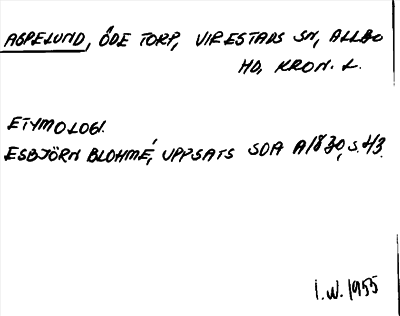 ASPELUND, ÖDE TORP, VIRESTADS SN, ALLBO
HD, KRON. L.
ETYMOLOGI.
ESBJÖRN BLOHMÉ, UPPSATS SOA A1830, S. 43.
I.W. 1955